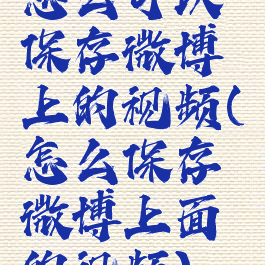 怎么可以
保存微博
上的视频(
怎么保存
微博上面
的视频)